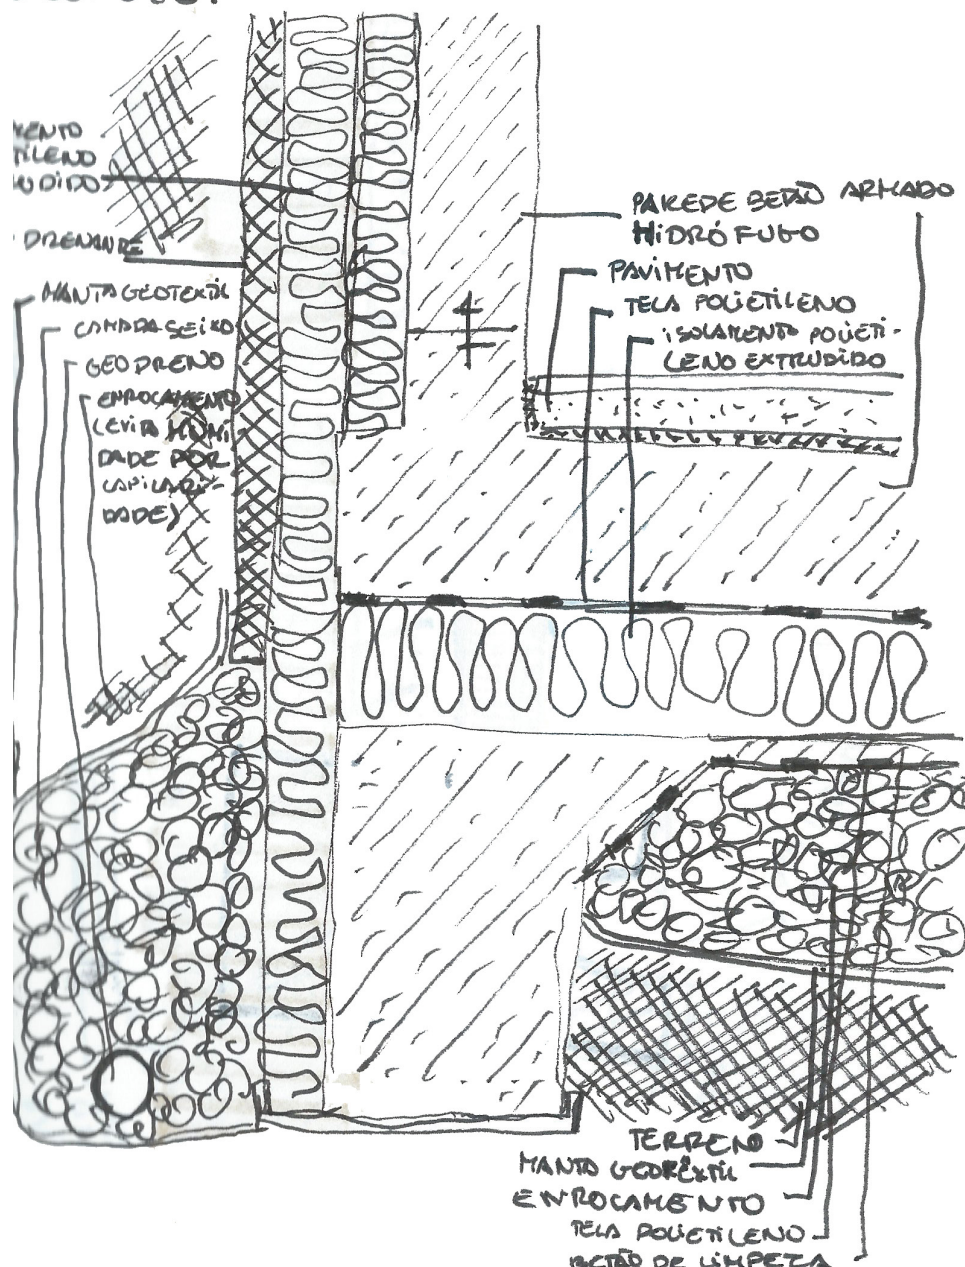 MENTO
TILENO
UDIDO)
DRENANTE
MANTA GEOTEXTIL
CAMADA SEIXO
GEODRENO
ENROCAMENTO
(EVITA HUMI-
DADE POR
CAPILARI-
DADE)
PAREDE BETÃO ARMADO
HIDRÓFUGO
PAVIMENTO
TELA POLIETILENO
ISOLAMENTO POLIETI-
LENO EXTRUDIDO
TERRENO
MANTO GEOTÊXTIL
ENROCAMENTO
TELA POLIETILENO
BETÃO DE LIMPEZA